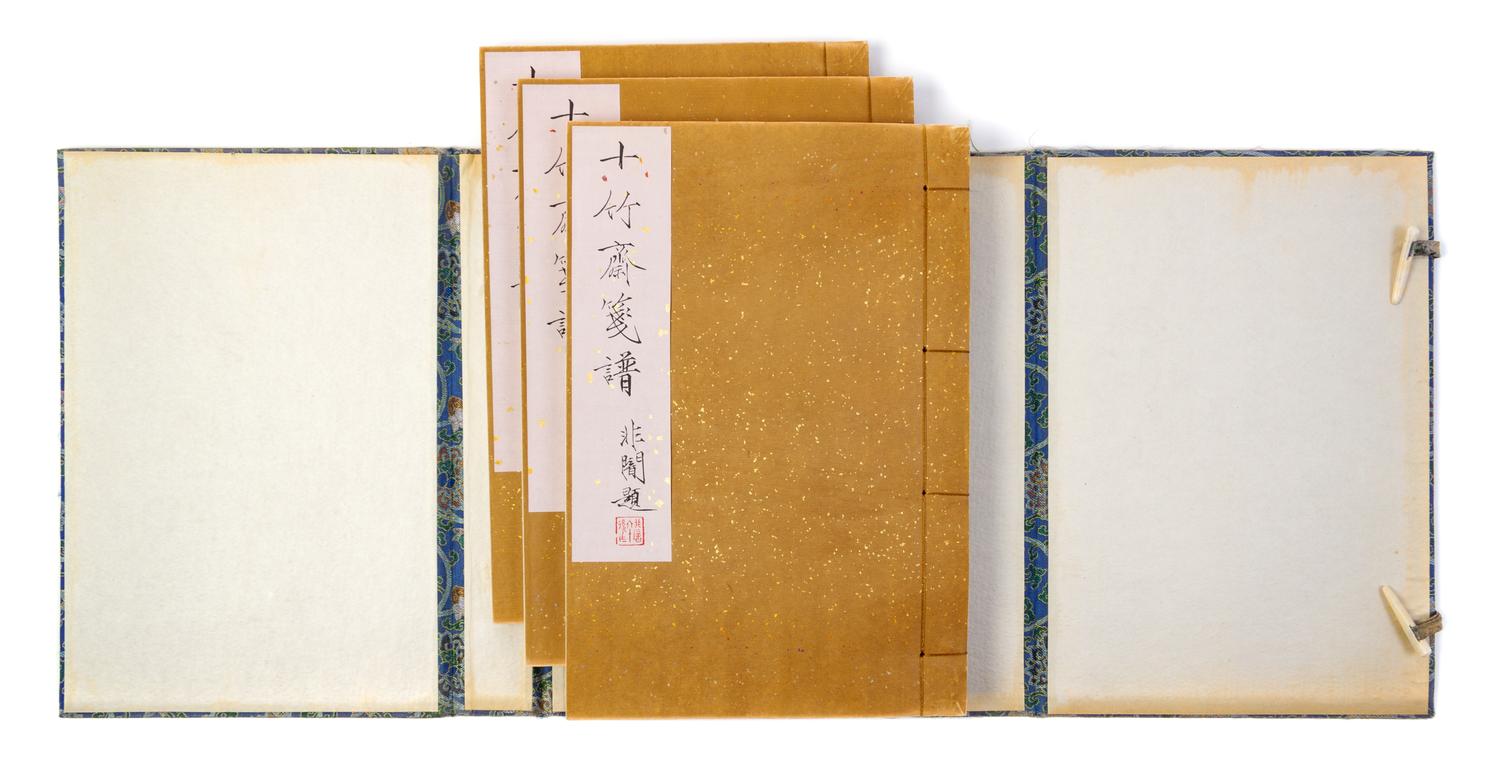 十竹齋箋譜
非闇題
十